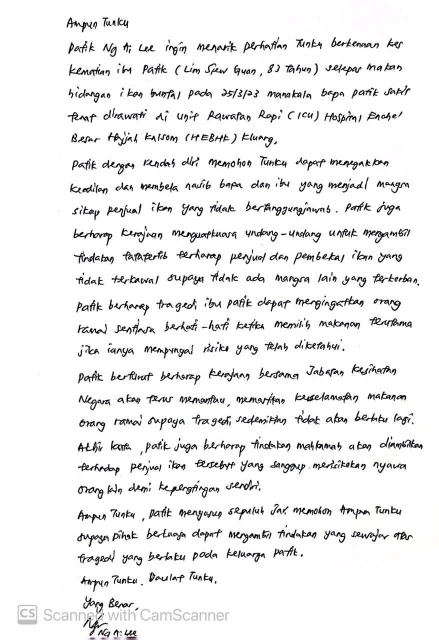 Ampun Tunku
Patik Ng Ai Lee ingin menarik perhatian Tunku berkenaan kes
kematian ibu Patik (Lim Siew Guan, 83 tahun) selepas makan
hidangan ikan buntal pada 25/3/23 manakala bapa patik sakit
tenat dirawati di unit Rawatan Rapi (ICU) Hospital Enche'
Besar Hajjah Kalsom (HEBHK) Kluang.
Patik dengan rendah diri memohon Tunku dapat menegakkan
keadilan dan membela nasib bapa dan ibu yang menjadi mangsa
sikap penjual ikan yang tidak bertanggungjawab. Patik juga
berharap kerajaan menguatkuasa undang-undang untuk mengambil
tindakan tatatertib terhadap penjual dan pembekal ikan yang
tidak terkawal supaya tidak ada mangsa lain yang terkorban.
Patik berharap tragedi ibu patik dapat mengingatkan orang
ramai sentiasa berhati-hati ketika memilih makanan terutama
jika ianya mempunyai risiko yang telah diketahui.
Patik berturut berharap kerajaan bersama Jabatan Kesihatan
Negara akan terus memantau, memastikan keselamatan makanan
orang ramai supaya tragedi sedemikian tidak akan berlaku lagi.
Akhir kata, patik juga berharap tindakan mahkamah akan diambilkan
terhadap penjual ikan tersebut yang sanggup merisikokan nyawa
orang lain demi kepentingan sendiri.
Ampun Tunku, patik menyusun sepuluh jari memohon Ampun Tunku
supaya pihak berkuasa dapat mengambil tindakan yang sewajar atas
tragedi yang berlaku pada keluarga patik.
Ampun Tunku. Daulat Tunku.
Yang Benar,
Ng Ai Lee
CS Scanned with CamScanner